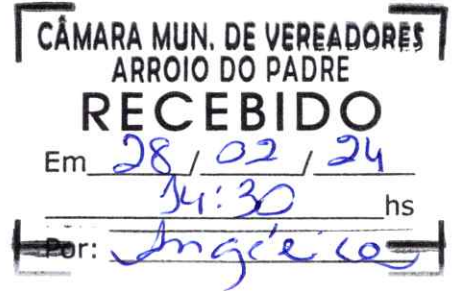 CÂMARA MUN. DE VEREADORES
ARROIO DO PADRE
RECEBIDO
Em 28 / 02 / 24
14:30 hs
Por: Angélica